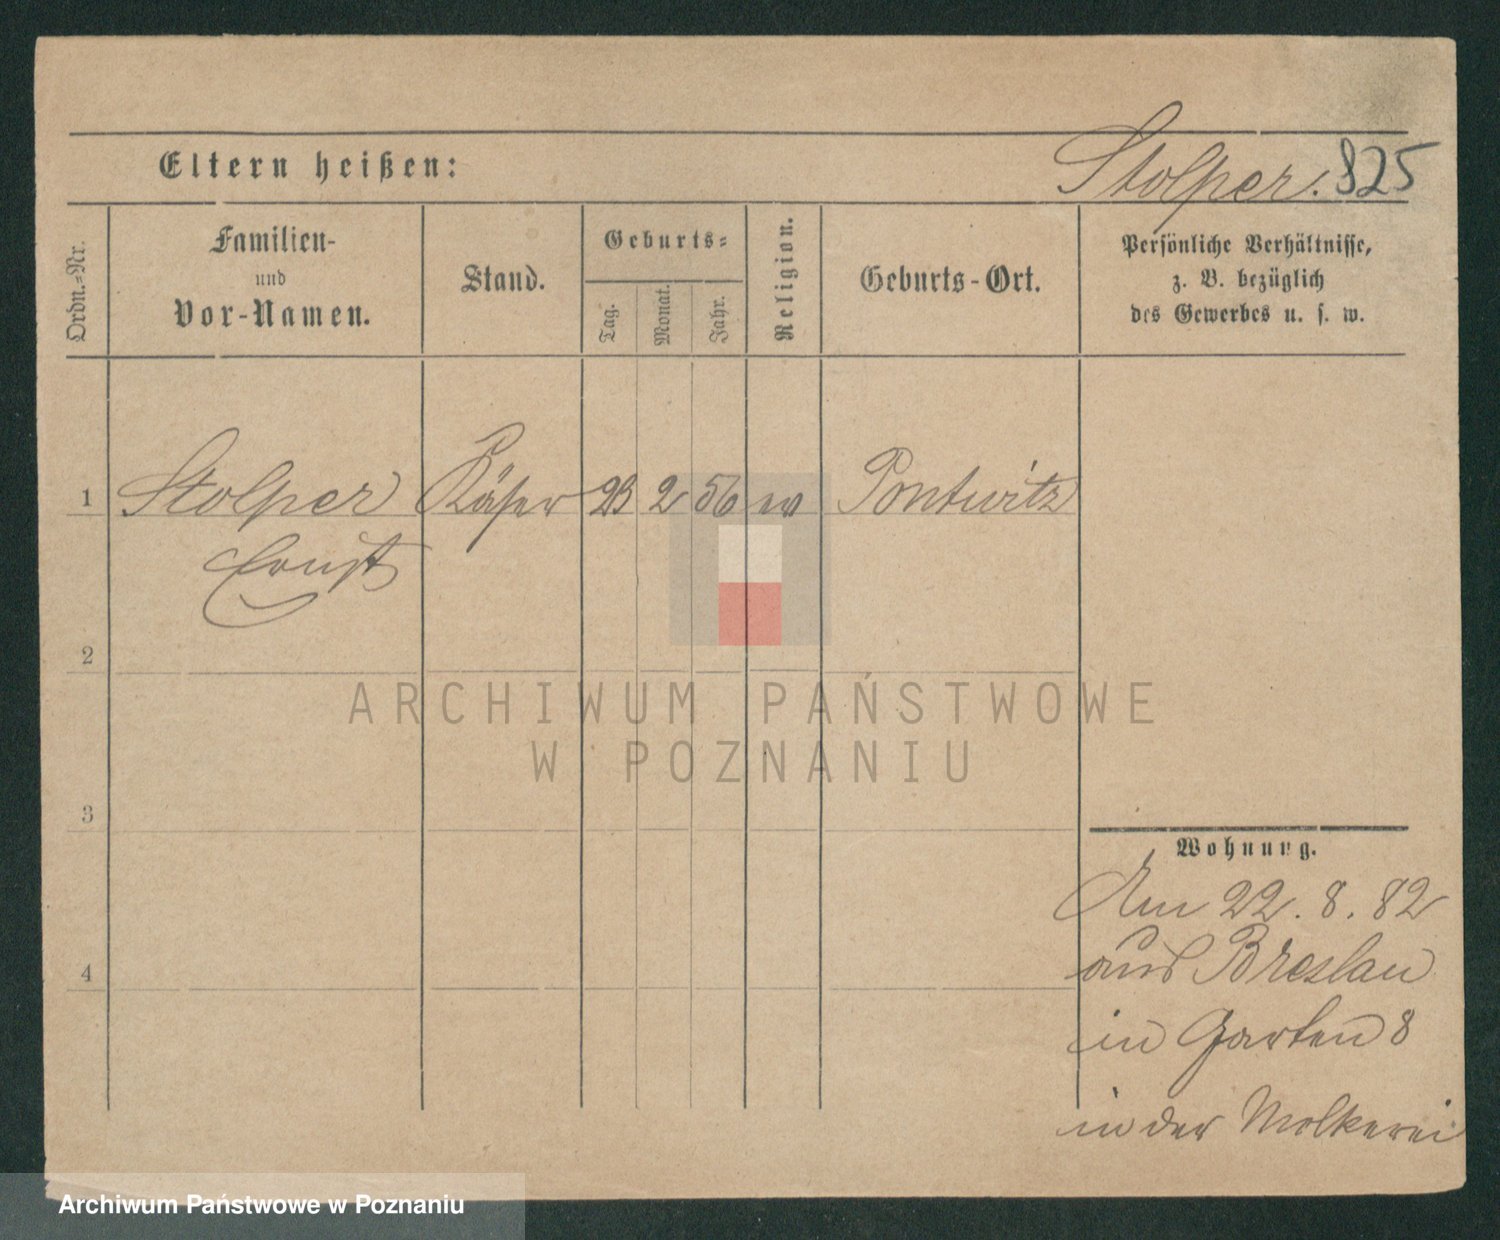 Stolper. 825
Eltern heißen:
Ordn.=Nr.
Familien-
und
Vor-Namen.
Stand.
Geburts=
Tag.
Monat.
Jahr.
Religion.
Geburts-Ort.
Persönliche Verhältnisse,
z. B. bezüglich
des Gewerbes u. s. w.
1 Stolper Käser 23 2 56 ev Pontwitz
Ernst
2
3
4
Wohnung.
Am 22. 8. 82
aus Breslau
in Garten 8
in der Molkerei
ARCHIWUM PAŃSTWOWE
W POZNANIU
Archiwum Państwowe w Poznaniu